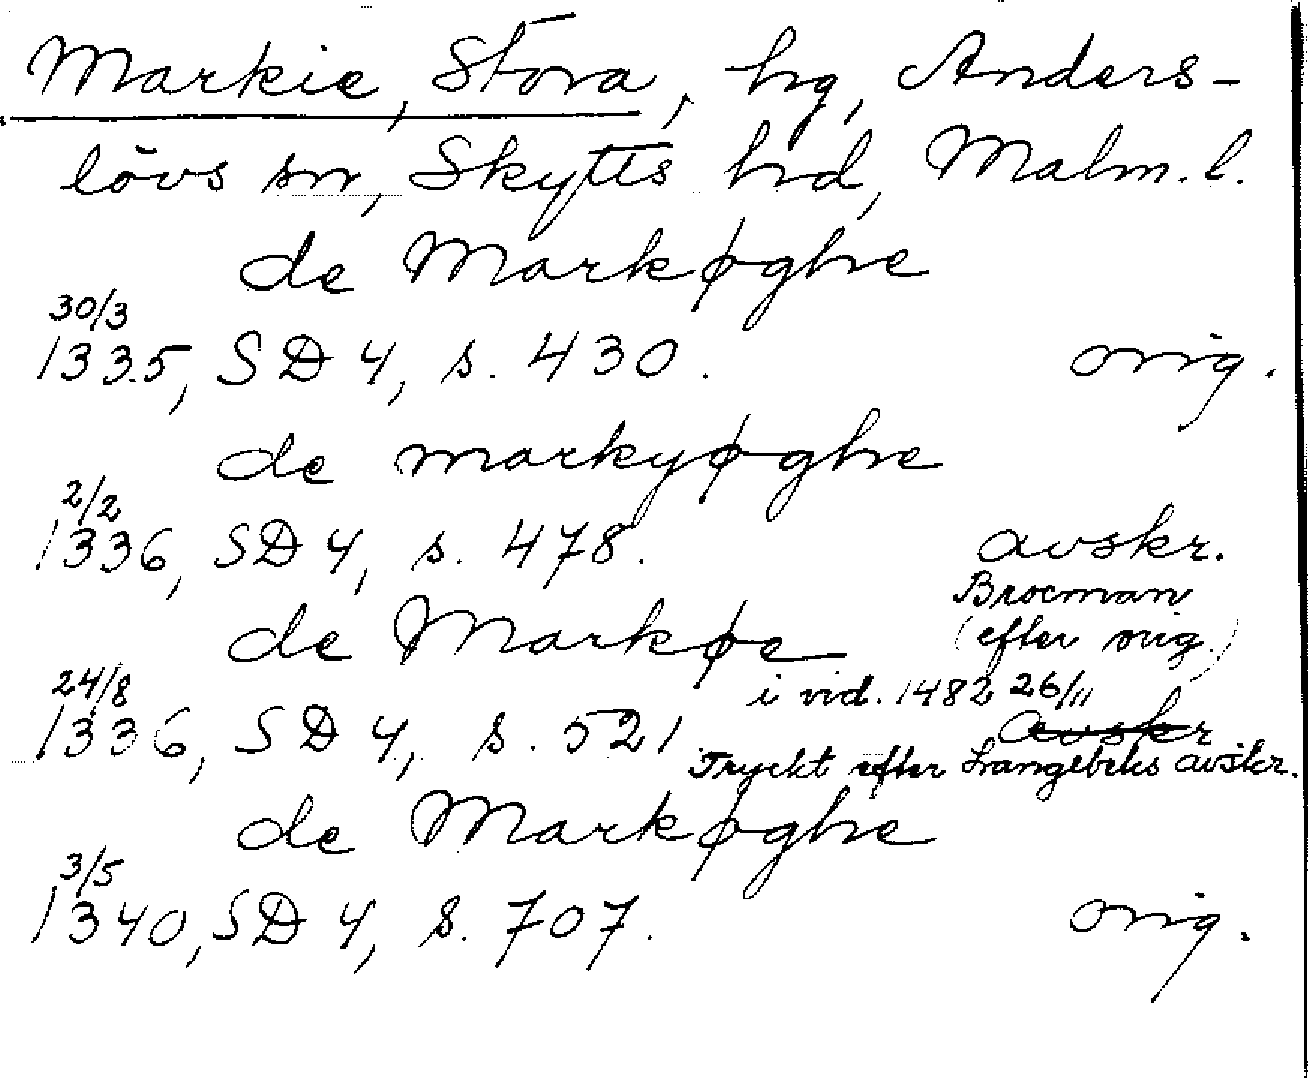 Markie, Stora, hg, Anders-
lövs sn, Skytts hd, Malm. l.
de Markøghe
30/3
1335, SD 4, s. 430. orig.
de markyøghe
2/2
1336, SD 4, s. 478. avskr.
Brocman
(efter orig.)
de Markøe
i vid. 1482 26/11
24/8
1336, SD 4, s. 521 avskr
Tryckt efter Langebeks avskr.
de Markøghe
3/5
1340, SD 4, s. 707. orig.